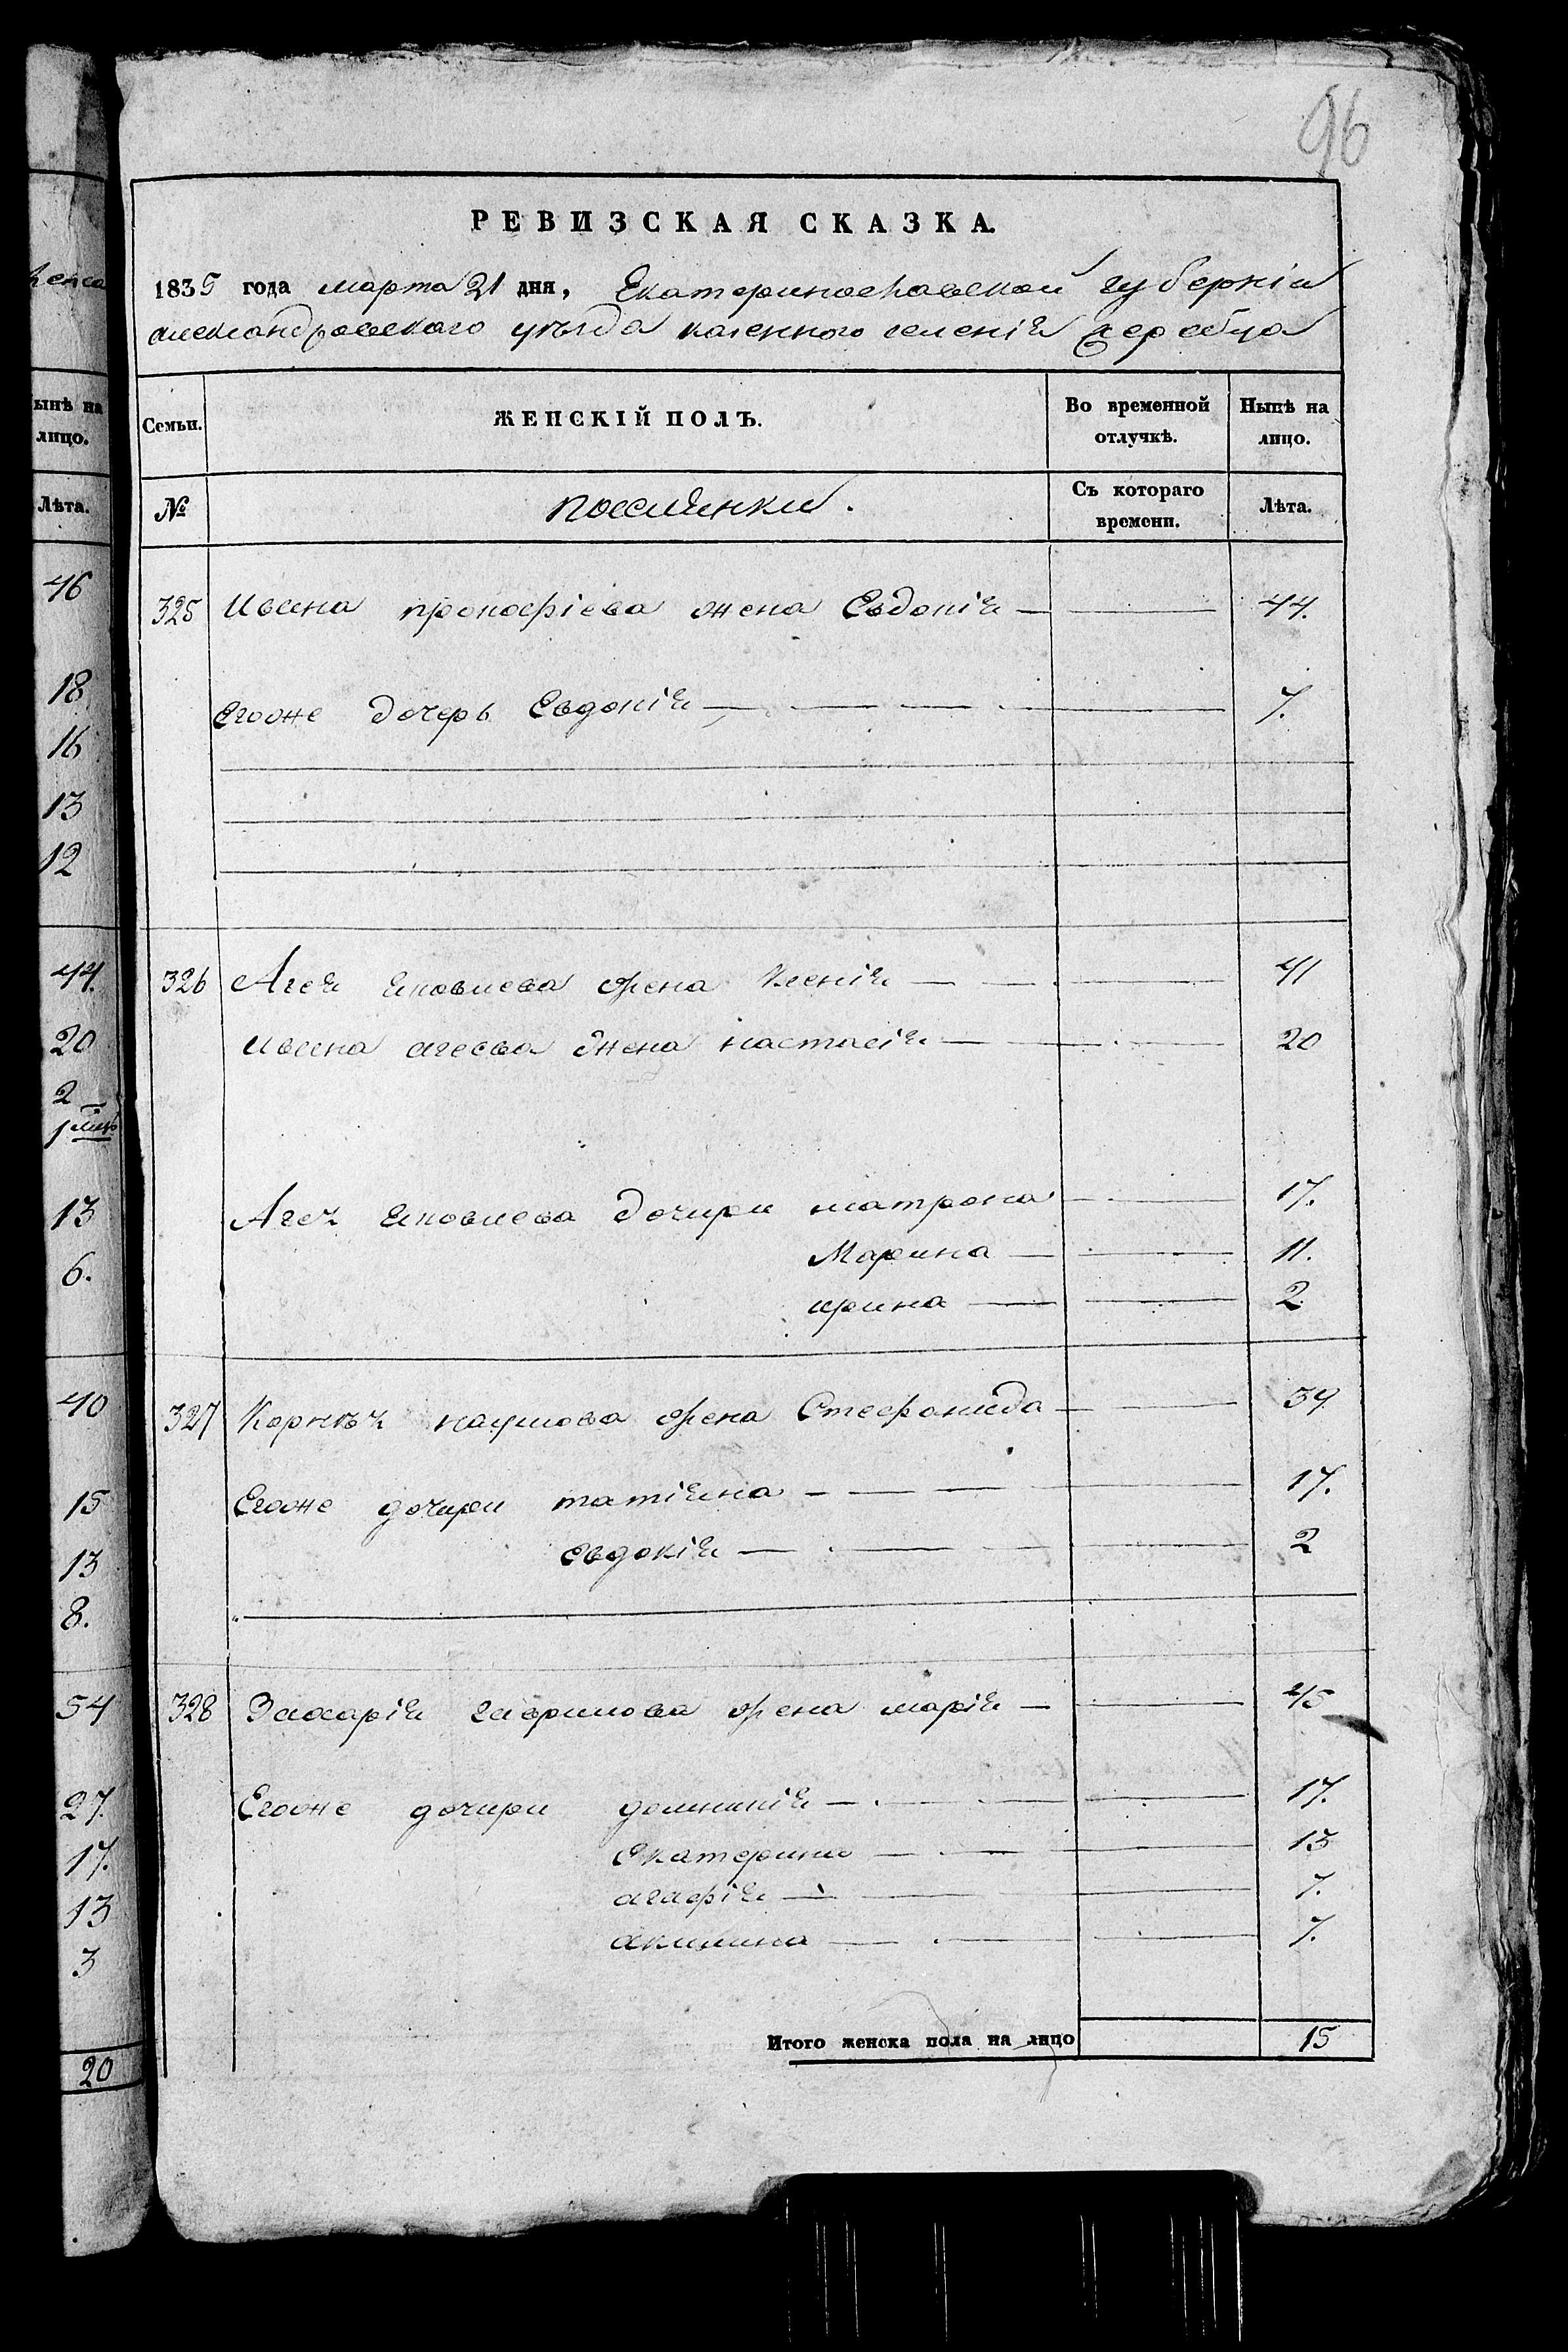 96
РЕВИЗСКАЯ СКАЗКА.
1835 года марта 21 дня, Екатеринославской губерніи
александровского уѣзда казенного селенія жеребца
Семьи. ЖЕНСКІЙ ПОЛЪ. Во временной отлучкѣ. Нынѣ на лицо.
№ поселянки. Съ котораго времени. Лѣта.
325 Ивана прокофіева жена Евдокія — 44.
Егоже дочерь Евдокія — 7.
326 Агея яковлева жена Ксенія — 41
Ивана агеева жена настасія — 20
Агея яковлева дочири матрона — 17.
Марина — 11.
ирина — 2
327 Корнѣя наумова жена Стефанида — 39
Егоже дочири татіяна — 17.
евдокія — 2
328 Захарія гаврилова жена марія — 45
Егоже дочири домникія — 17.
екатерина — 13
агафія — 7.
акилина — 7.
Итого женска пола на лицо 15
женса
ынѣ на
лицо.
Лѣта.
46
18
16
13
12
44.
20
2
1 мѣс
13
6.
40
15
13
8.
54
27.
17.
13
3
20